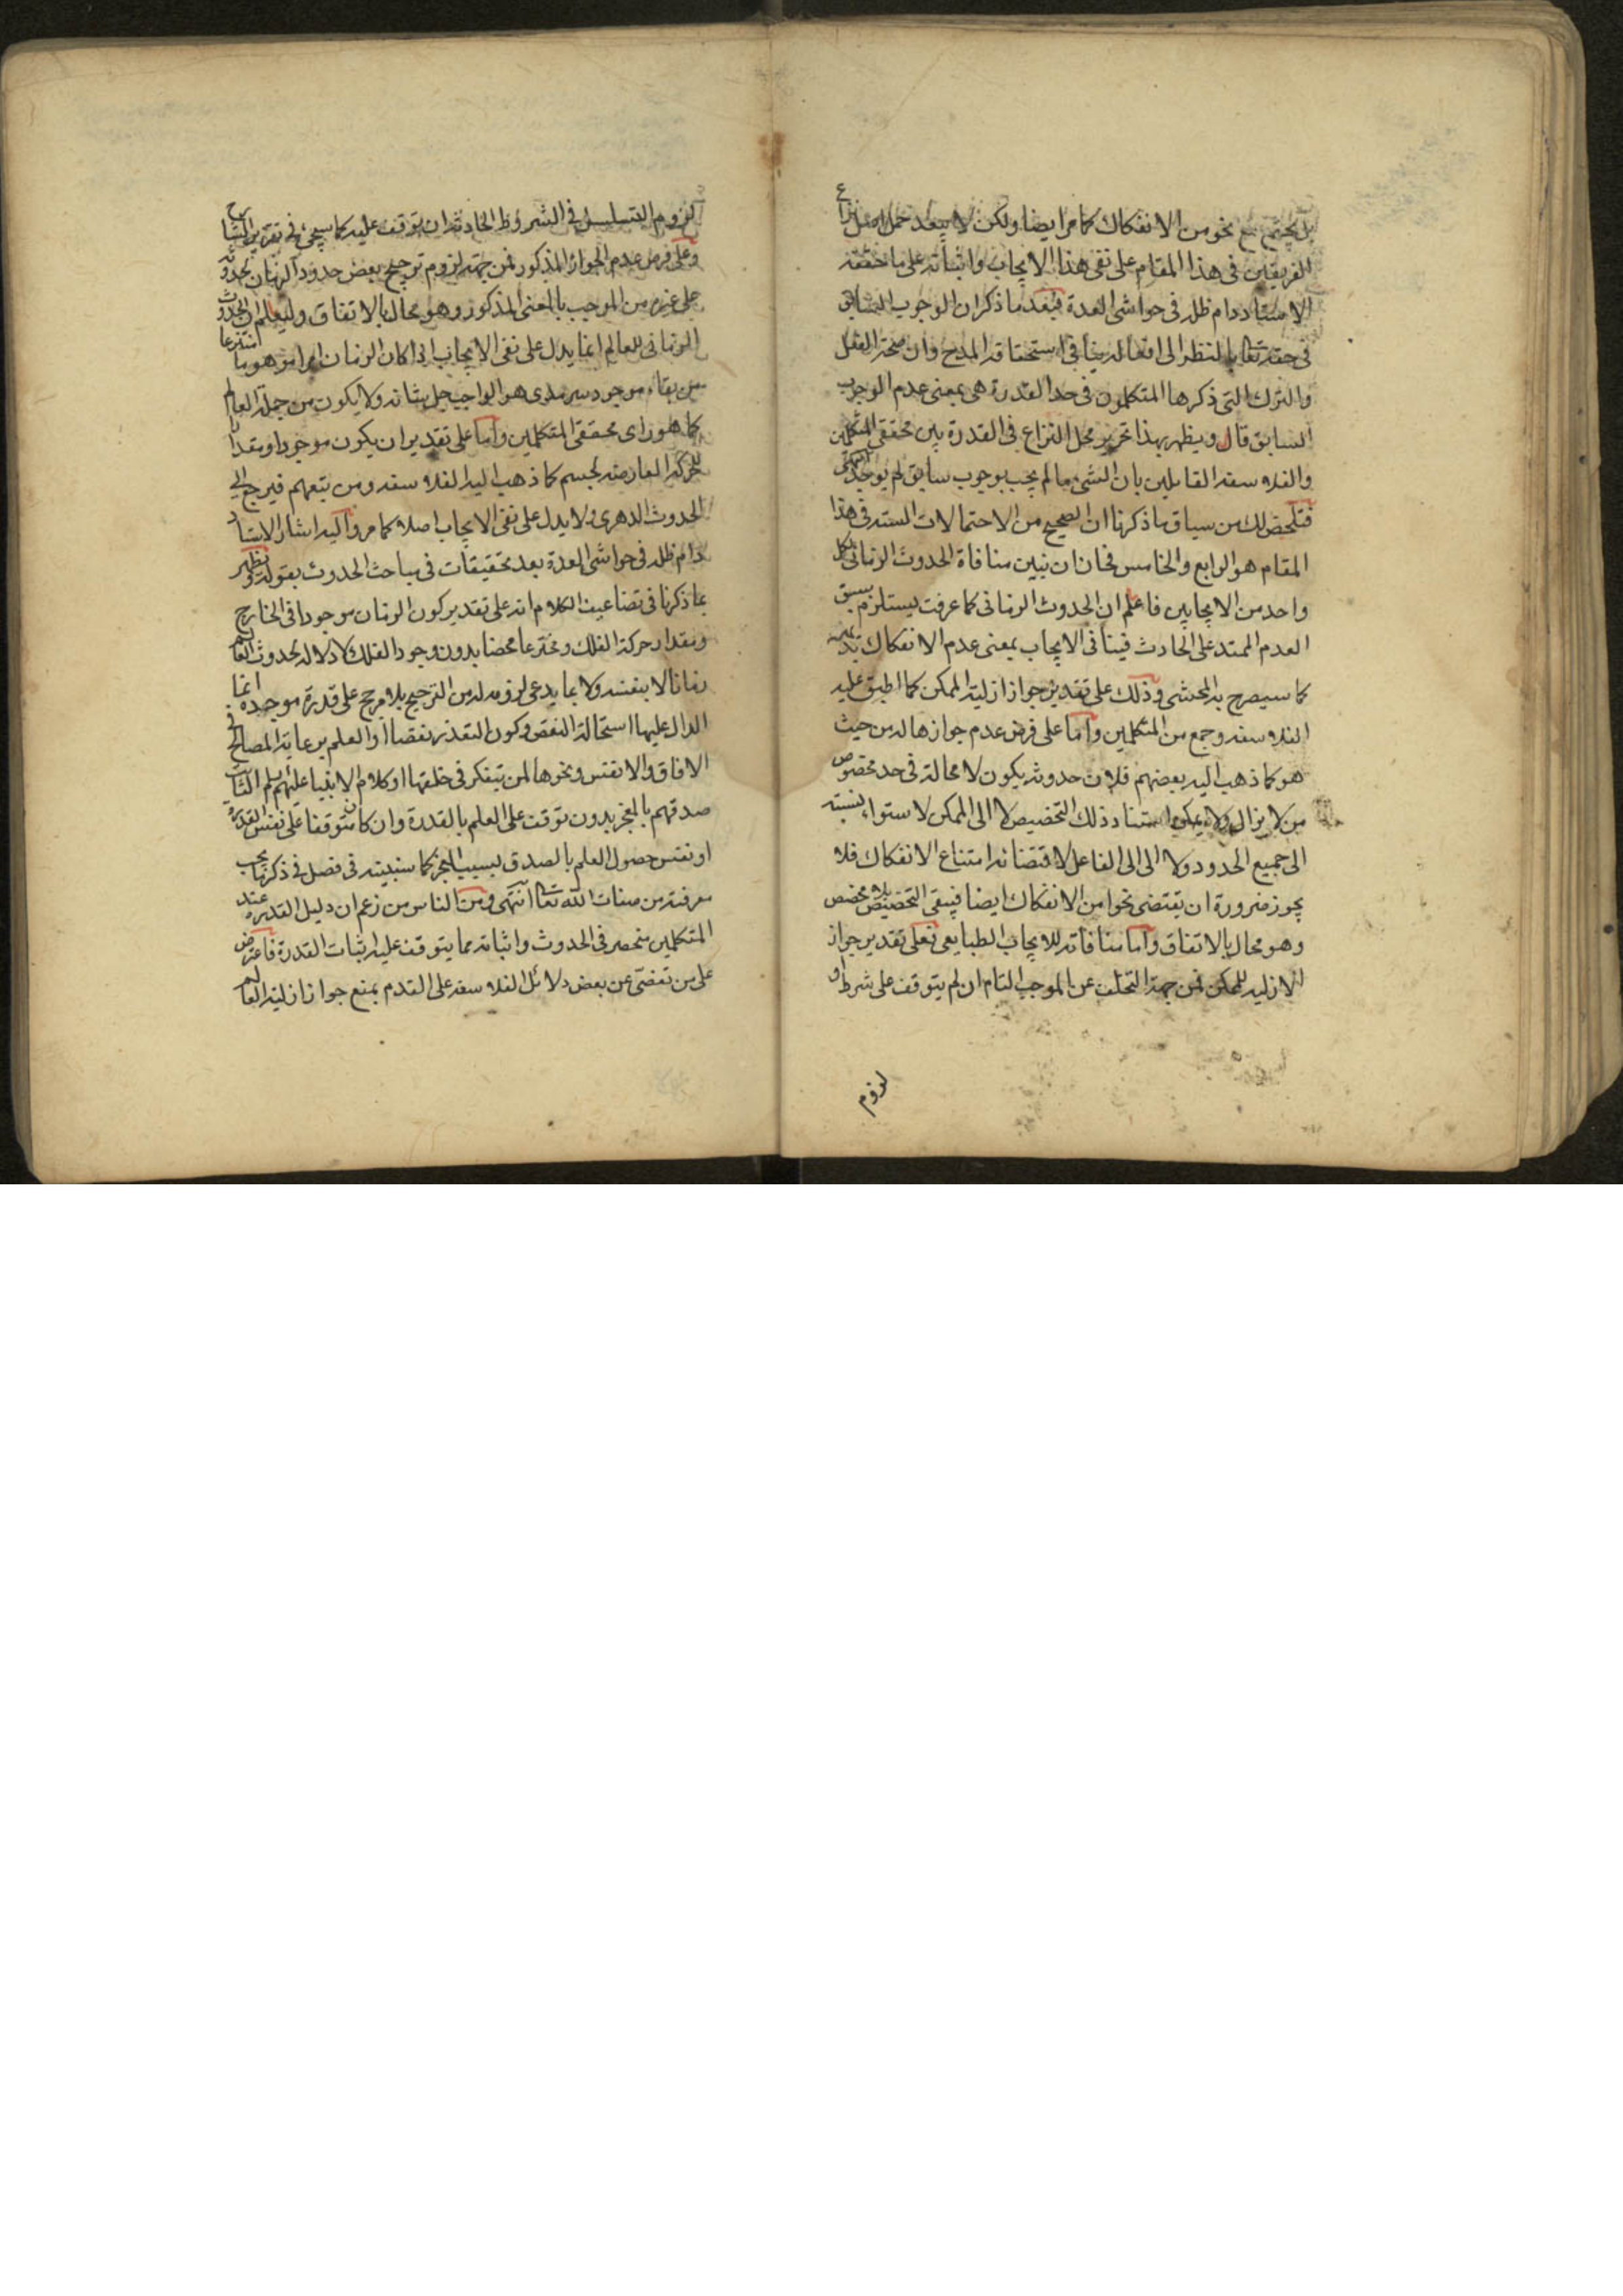 بل يجتمع مع نحو من الانفكاك كما مر ايضا ولكن لا يبعد حمل اصل نزاع
الفريقين فى هذا المقام على نفى هذا الايجاب واثباته على ما حققه
الاستاد دام ظله فى حواشى العدة فبعد ما ذكر ان الوجوب السابق
فى حقه تعالى بالنظر الى افعاله ينافى استحقاقه المدح وان صحة الفعل
والترك التى ذكرها المتكلمون فى حد القدرة هى بمعنى عدم الوجوب
السابق قال ويظهر بهذا تحرير محل النزاع فى القدرة بين محققى المتكلمين
والفلاسفة القايلين بان الشىء ما لم يجب بوجوب سابق لم يوجد انتهى
فتلخص لك من سياق ما ذكرنا ان الصحيح من الاحتمالات الستة فى هذا
المقام هو الرابع والخامس فحان ان نبين منافاة الحدوث الزمانى لكل
واحد من الايجابين فاعلم ان الحدوث الزمانى كما عرفت يستلزم سبق
العدم الممتد على الحادث فينافى الايجاب بمعنى عدم الانفكاك بديهة
كما سيصرح به المحشى وذلك على تقدير جواز ازلية الممكن كما اطبق عليه
الفلاسفة وجمع من المتكلمين واما على فرض عدم جوازها له من حيث
هو كما ذهب اليه بعضهم فلان حدوثه يكون لا محالة فى حد مخصوص
من لا يزال ولا يمكن استناد ذلك التخصيص لا الى الممكن لاستواء نسبته
الى جميع الحدود ولا الى الى الفاعل لاقتضائه امتناع الانفكاك فلا
يجوز ضرورة ان يقتضى نحوا من الانفكاك ايضا فيبقى التخصيص بلا مخصص
وهو محال بالاتفاق واما منافاته للايجاب الطبايعى فعلى تقدير جواز
الازلية للممكن فمن جهة التخلف عن الموجب التام ان لم يتوقف على شرط او
لزوم
لزوم التسلسل فى الشروط الحادثة ان توقف عليه كما سيجئ فى تقرير الشارح
وعلى فرض عدم الجواز المذكور فمن جهة لزوم ترجيح بعض حدود الزمان بحدوثه
على غيره من الموجب بالمعنى المذكور وهو محال بالاتفاق وليعلم ان الحدوث
الزمانى للعالم انما يدل على نفى الايجاب اذا كان الزمان امرا موهوما انتزعا
من بقاء موجود سرمدى هو الواجب جل شانه ولا يكون من جملة العالم
كما هو راى محققى المتكلمين واما على تقدير ان يكون موجودا ومقدارا
للحركة العارضة لجسم كما ذهب اليه الفلاسفة ومن يتبعهم فيرجع الى
الحدوث الدهرى ولا يدل على نفى الايجاب اصلا كما مر واليه اشار الاستاد
دام ظله فى حواشى العدة بعد تحقيقات فى مباحث الحدوث بقوله ويظهر
بما ذكرنا فى تضاعيف الكلام انه على تقدير كون الزمان موجودا فى الخارج
ومقدار حركة الفلك ومخترعا محضا بدون وجود الفلك لا دلالة لحدوث العالم
زمانا لا بنفسه ولا بما يدعى لزومه له من الترجيح بلا مرجح على قدرة موجده انما
الدال عليها استحالة النقص وكون التقدير نقصا او العلم برعاية المصالح فى
الافاق والانفس ونحوها لمن يتفكر فى خلقها او كلام الانبياء عليهم السلم الثابت
صدقهم بالمعجز بدون توقف على العلم بالقدرة وان كان متوقفا على نفس القدرة
او نفس حصول العلم بالصدق بسبب المعجز كما سنبينه فى فصل فى ذكر ما يجب
معرفته من صفات الله تعالى انتهى ومن الناس من زعم ان دليل القدرة عند
المتكلمين منحصر فى الحدوث واثباته مما يتوقف عليه اثبات القدرة فاعترض
على من تفصى عن بعض دلائل الفلاسفة على القدم بمنع جواز ازلية العالم